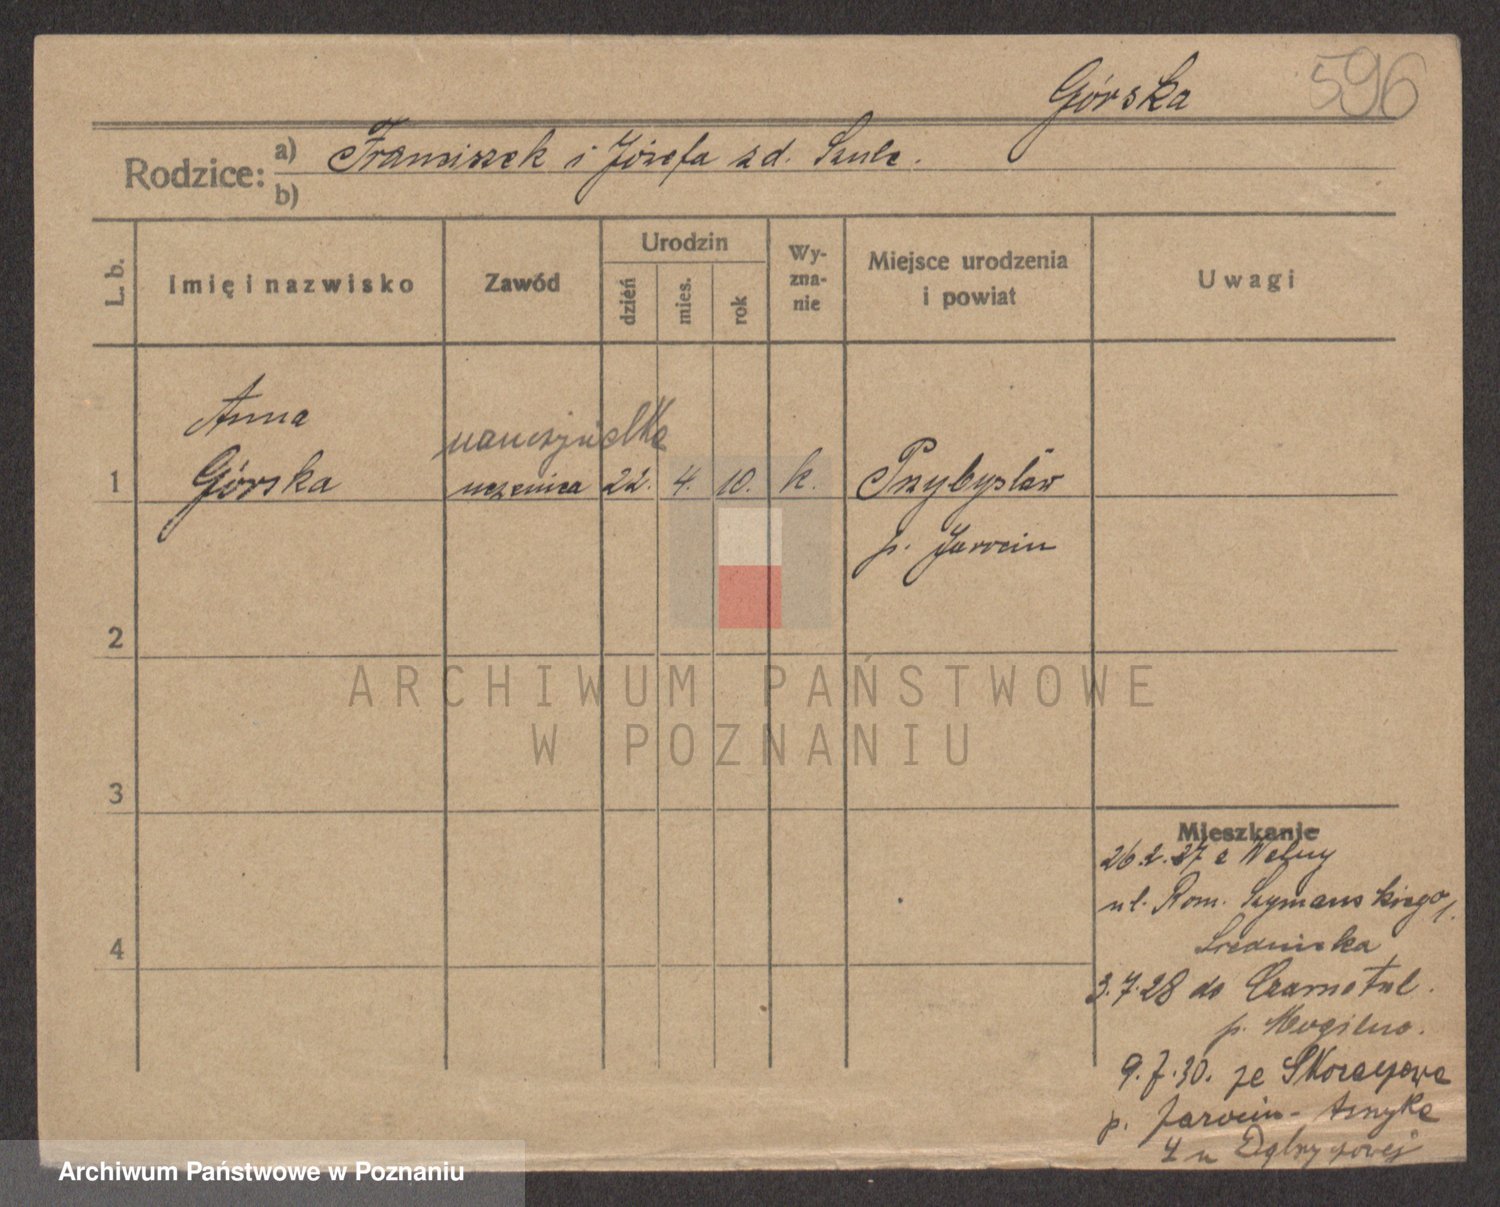 Górska 596
Rodzice: a) Franciszek i Józefa z d. Szulc.
b)
L. b.
Imię i nazwisko
Zawód
Urodzin
dzień
mies.
rok
Wy-
zna-
nie
Miejsce urodzenia
i powiat
Uwagi
Anna
nauczycielka
1 Górska uczenica 22. 4. 10. k. Przybysław
p. Jarocin
2
3
4
ARCHIWUM PAŃSTWOWE
W POZNANIU
Mieszkanie
26.2.27 z Wełny
ul. Rom. Szymańskiego 1.
Średnicka
3.7.28 do
p. Mogilno.
9.7.30. ze
p. Jarocin - Asnyka
4 u
Archiwum Państwowe w Poznaniu